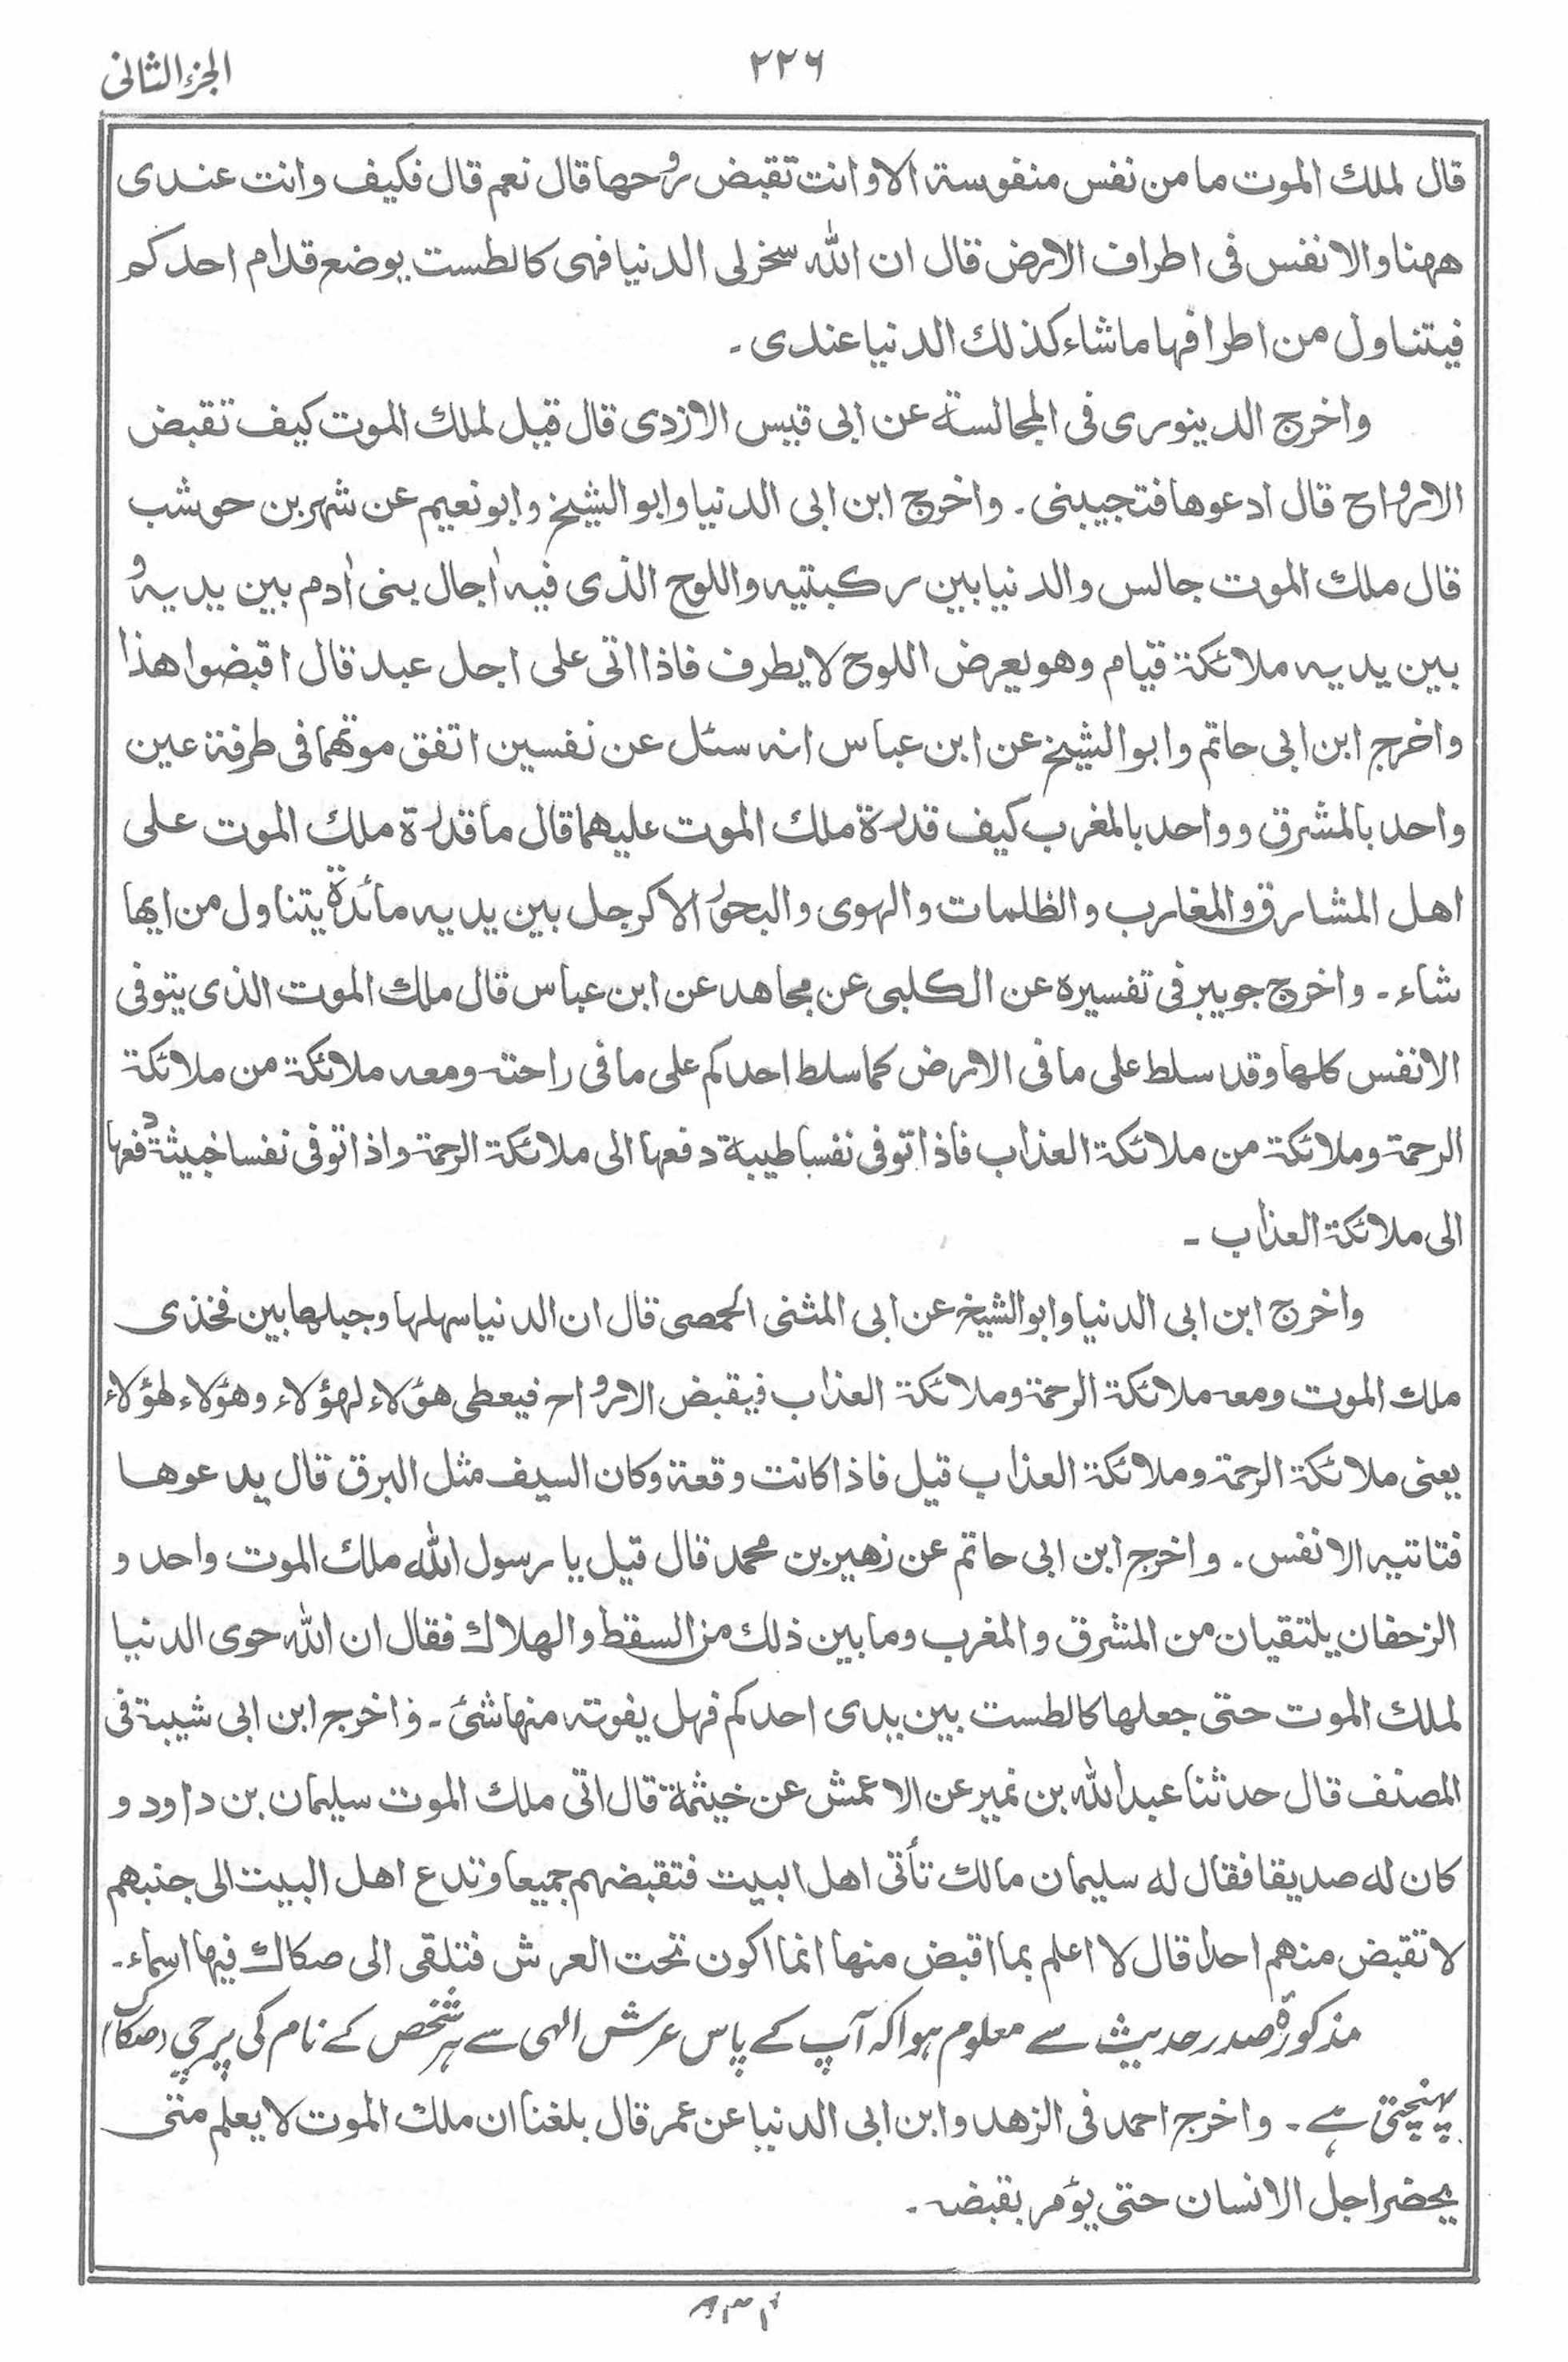 الجزء الثانی
۲۲۶
قال لملك الموت ما من نفس منفوسة الا و انت تقبض روحها قال نعم قال فكيف وانت عندی
ههنا والانفس فی اطراف الارض قال ان الله سخرلی الدنیا فهی كالطست یوضع قدام احدكم
فیتناول من اطرافها ماشاء كذلك الدنیا عندی ۔
واخرج الدینوری فی المجالسة عن ابی قیس الازدی قال قیل لملك الموت كیف تقبض
الارواح قال ادعوها فتجیبنی ۔ واخرج ابن ابی الدنیا وابو الشیخ وابو نعیم عن شهر بن حوشب
قال ملك الموت جالس والدنیا بین ركبتیه واللوح الذی فیه اٰجال بنی اٰدم بین یدیه و
بین یدیه ملائكة قیام وهو یعرض اللوح لا یطرف فاذا اتی علی اجل عبد قال اقبضوا هذا
واخرج ابن ابی حاتم وابو الشیخ عن ابن عباس انه سئل عن نفسین اتفق موتهما فی طرفة عین
واحد بالمشرق وواحد بالمغرب كیف قدرة ملك الموت علیهما قال ما قدرة ملك الموت علی
اهل المشارق والمغارب والظلمات والهوی والبحور الا كرجل بین یدیه مائدة یتناول من ایها
شاء ۔ واخرج جویبر فی تفسیره عن الكلبی عن مجاهد عن ابن عباس قال ملك الموت الذی یتوفی
الانفس كلها وقد سلط علی ما فی الارض كما سلط احدكم علی ما فی راحته ومعه ملائكة من ملائكة
الرحمة وملائكة من ملائكة العذاب فاذا توفی نفسا طیبة دفعها الی ملائكة الرحمة واذا توفی نفسا خبیثة دفعها
الی ملائكة العذاب ۔
واخرج ابن ابی الدنیا وابو الشیخ عن ابی المثنی الحمصی قال ان الدنیا سهلها وجبلها بین فخذی
ملك الموت ومعه ملائكة الرحمة وملائكة العذاب فیقبض الارواح فیعطی هؤلاء لهؤلاء وهؤلاء لهؤلاء
یعنی ملائكة الرحمة وملائكة العذاب قیل فاذا كانت وقعة وكان السیف مثل البرق قال یدعوها
فتاتیه الانفس ۔ واخرج ابن ابی حاتم عن زهیر بن محمد قال قیل یا رسول الله ملك الموت واحد و
الزحفان یلتقیان من المشرق والمغرب وما بین ذلك من السقط والهلاك فقال ان الله حوی الدنیا
لملك الموت حتی جعلها كالطست بین یدی احدكم فهل یفوته منها شئ ۔ واخرج ابن ابی شیبة فی
المصنف قال حدثنا عبد الله بن نمیر عن الاعمش عن خیثمة قال اتی ملك الموت سلیمان بن داود و
كان له صدیقا فقال له سلیمان مالك تأتی اهل البیت فتقبضهم جمیعا وتدع اهل البیت الی جنبهم
لا تقبض منهم احدا قال لا اعلم بما اقبض منها انما اكون تحت العرش فتلقی الی صكاك فیها اسماء۔
مذکورۂ صدر حدیث سے معلوم ہوا کہ آپ کے پاس عرش الٰہی سے ہر شخص کے نام کی پرچی (صکاک)
پہنچتی ہے ۔ واخرج احمد فی الزهد وابن ابی الدنیا عن عمر قال بلغنا ان ملك الموت لا یعلم متی
یحضر اجل الانسان حتی یؤمر بقبضه ۔